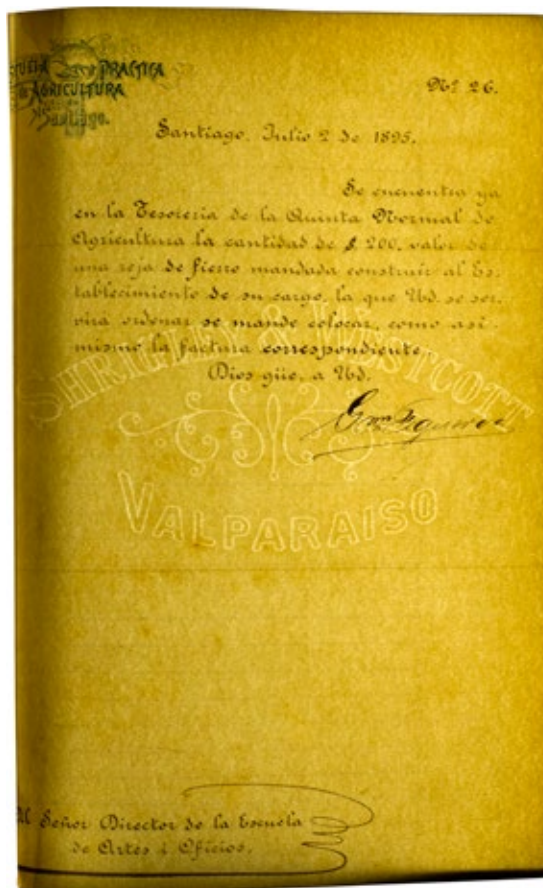 ESCUELA PRACTICA
de AGRICULTURA
Santiago.
Nº 26.
Santiago, Julio 2 de 1895.
Se encuentra ya
en la Tesoreria de la Quinta Normal de
Agricultura la cantidad de $ 200, valor de
una reja de fierro mandada construir al Es-
tablecimiento de su cargo, la que Ud. se ser-
virá ordenar se mande colocar, como asi-
mismo la factura correspondiente.
Dios güe. a Ud.
SHRIGLEY & WESTCOTT
VALPARAISO
Al Señor Director de la Escuela
de Artes i Oficios.